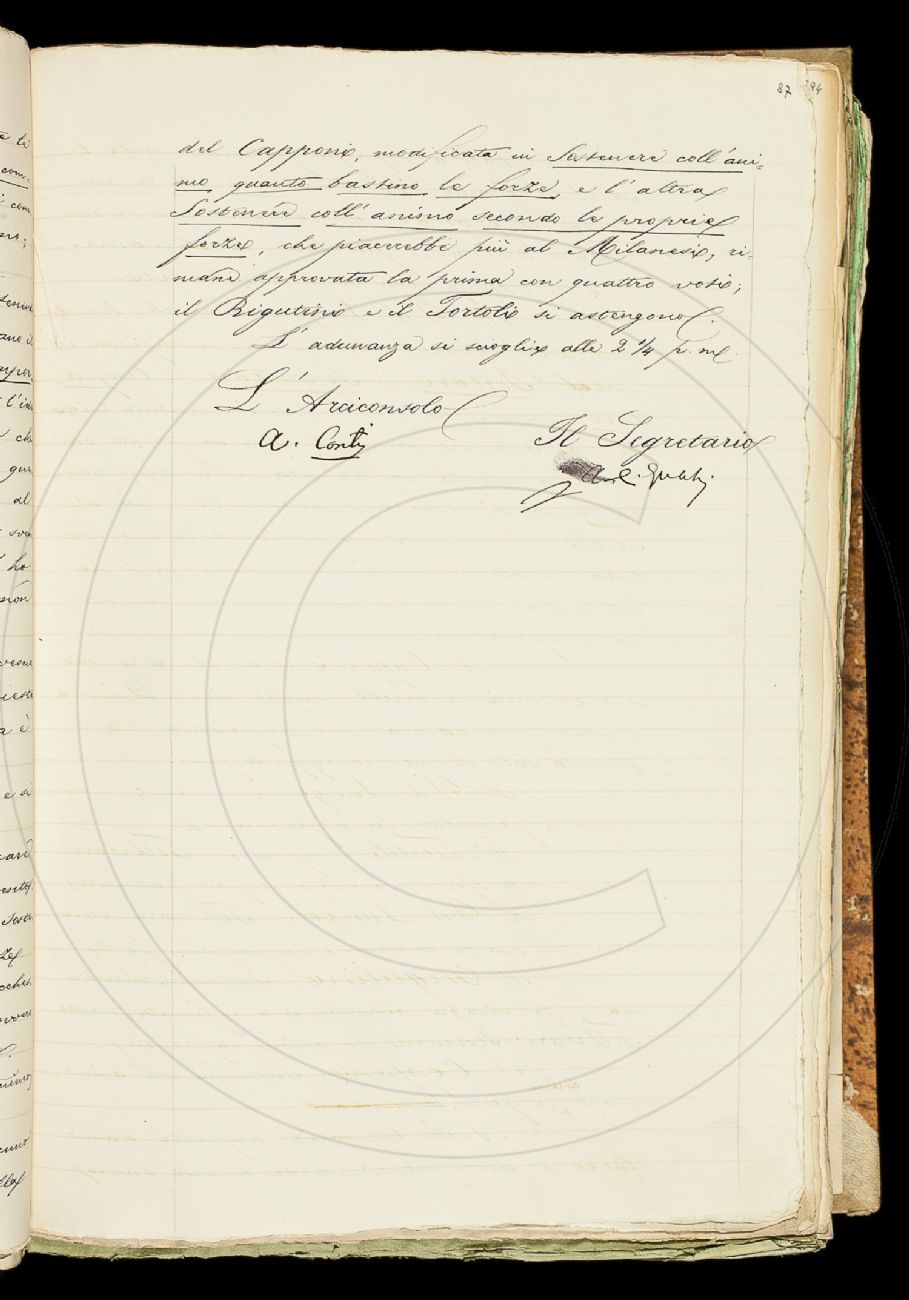 87 94
del Capponi, modificata in Sostenere coll'ani-
mo quanto bastino le forze, e l'altra
Sostenere coll'animo secondo le proprie
forze, che piacerebbe più al Milanesi, ri-
mane approvata la prima con quattro voti;
il Rigutini e il Tortoli si astengono.
L'adunanza si scioglie alle 2 1/4 p. m.
L'Arciconsolo
A. Conti
Il Segretario